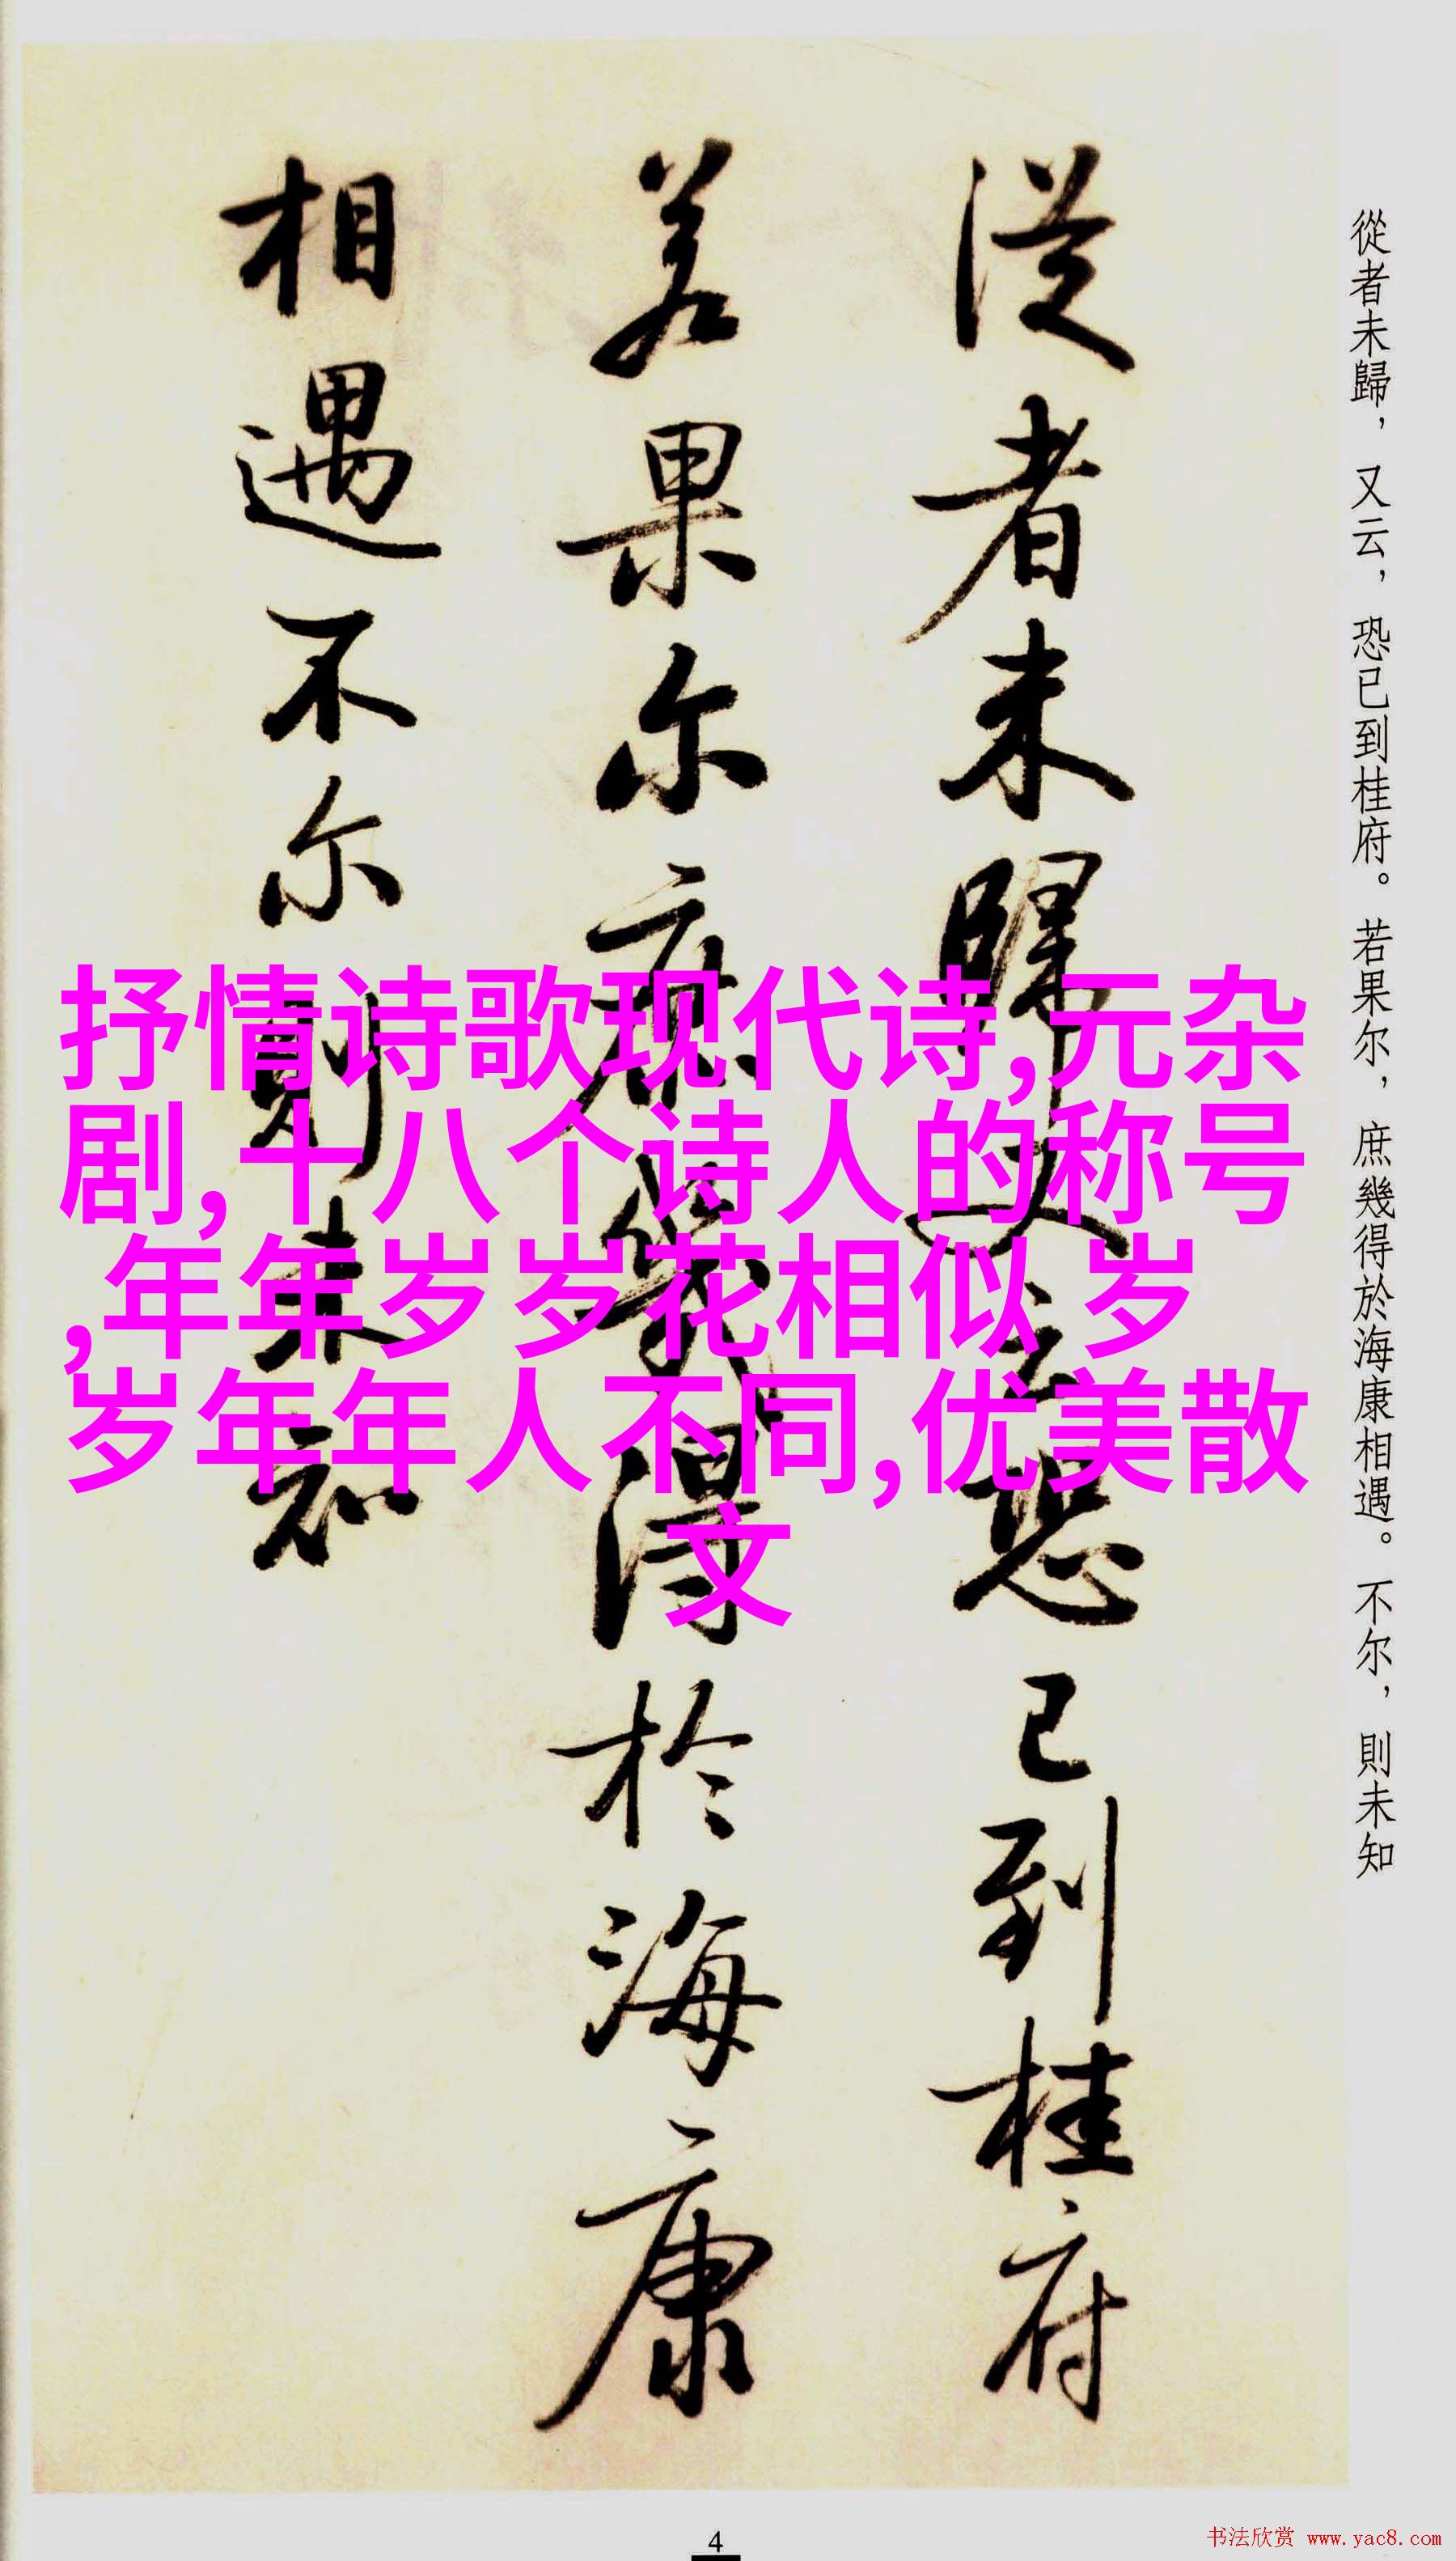 從者未歸，又云，恐已到桂府。若果尔，庶幾得於海康相遇。不尔，則未知
從者未歸又云恐已到桂府
若果尔庶幾得於海康
相遇不尔則未知
抒情诗歌现代诗,元杂
剧,十八个诗人的称号
,年年岁岁花相似 岁
岁年年人不同,优美散
文
4
书法欣赏 www.yac8.com